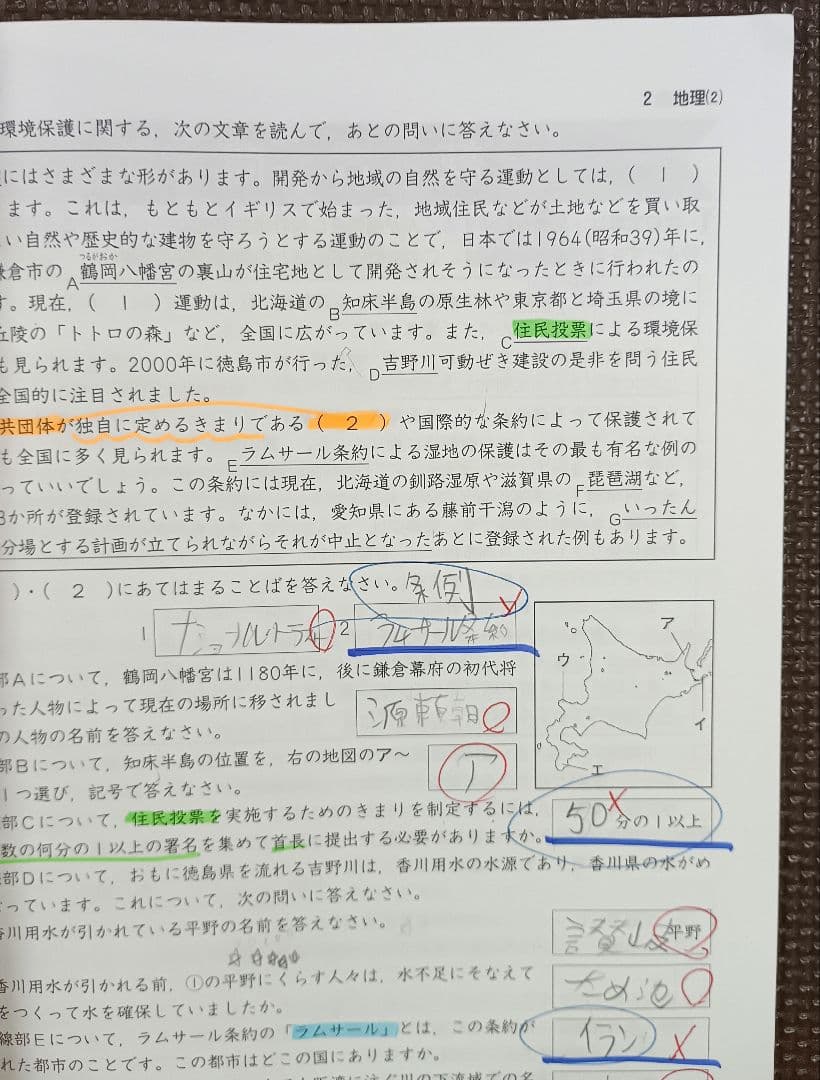 2 地理(2)
環境保護に関する，次の文章を読んで，あとの問いに答えなさい。
にはさまざまな形があります。開発から地域の自然を守る運動としては，（ 1 ）
ます。これは，もともとイギリスで始まった，地域住民などが土地などを買い取
い自然や歴史的な建物を守ろうとする運動のことで，日本では1964(昭和39)年に，
倉市の A鶴岡八幡宮の裏山が住宅地として開発されそうになったときに行われたの
つるがおか
す。現在，（ 1 ）運動は，北海道の B知床半島の原生林や東京都と埼玉県の境に
丘陵の「トトロの森」など，全国に広がっています。また，C住民投票による環境保
も見られます。2000年に徳島市が行った，D吉野川可動ぜき建設の是非を問う住民
全国的に注目されました。
共団体が独自に定めるきまりである（ 2 ）や国際的な条約によって保護されて
も全国に多く見られます。Eラムサール条約による湿地の保護はその最も有名な例の
っていいでしょう。この条約には現在，北海道の釧路湿原や滋賀県の F琵琶湖など，
か所が登録されています。なかには，愛知県にある藤前干潟のように，Gいったん
分場とする計画が立てられながらそれが中止となったあとに登録された例もあります。
）・（ 2 ）にあてはまることばを答えなさい。条例
1 ナショナルトラスト 2 ラムサール条約
部Aについて，鶴岡八幡宮は1180年に，後に鎌倉幕府の初代将
った人物によって現在の場所に移されまし
の人物の名前を答えなさい。
源頼朝
部Bについて，知床半島の位置を，右の地図のア～
1つ選び，記号で答えなさい。
ア
ア
ウ
イ
エ
部Cについて，住民投票を実施するためのきまりを制定するには，
数の何分の1以上の署名を集めて首長に提出する必要がありますか。
50分の1以上
部Dについて，おもに徳島県を流れる吉野川は，香川用水の水源であり，香川県の水がめ
なっています。これについて，次の問いに答えなさい。
香川用水が引かれている平野の名前を答えなさい。
讃岐平野
香川用水が引かれる前，①の平野にくらす人々は，水不足にそなえて
をつくって水を確保していましたか。
ため池
線部Eについて，ラムサール条約の「ラムサール」とは，この条約が
れた都市のことです。この都市はどこの国にありますか。
イラン